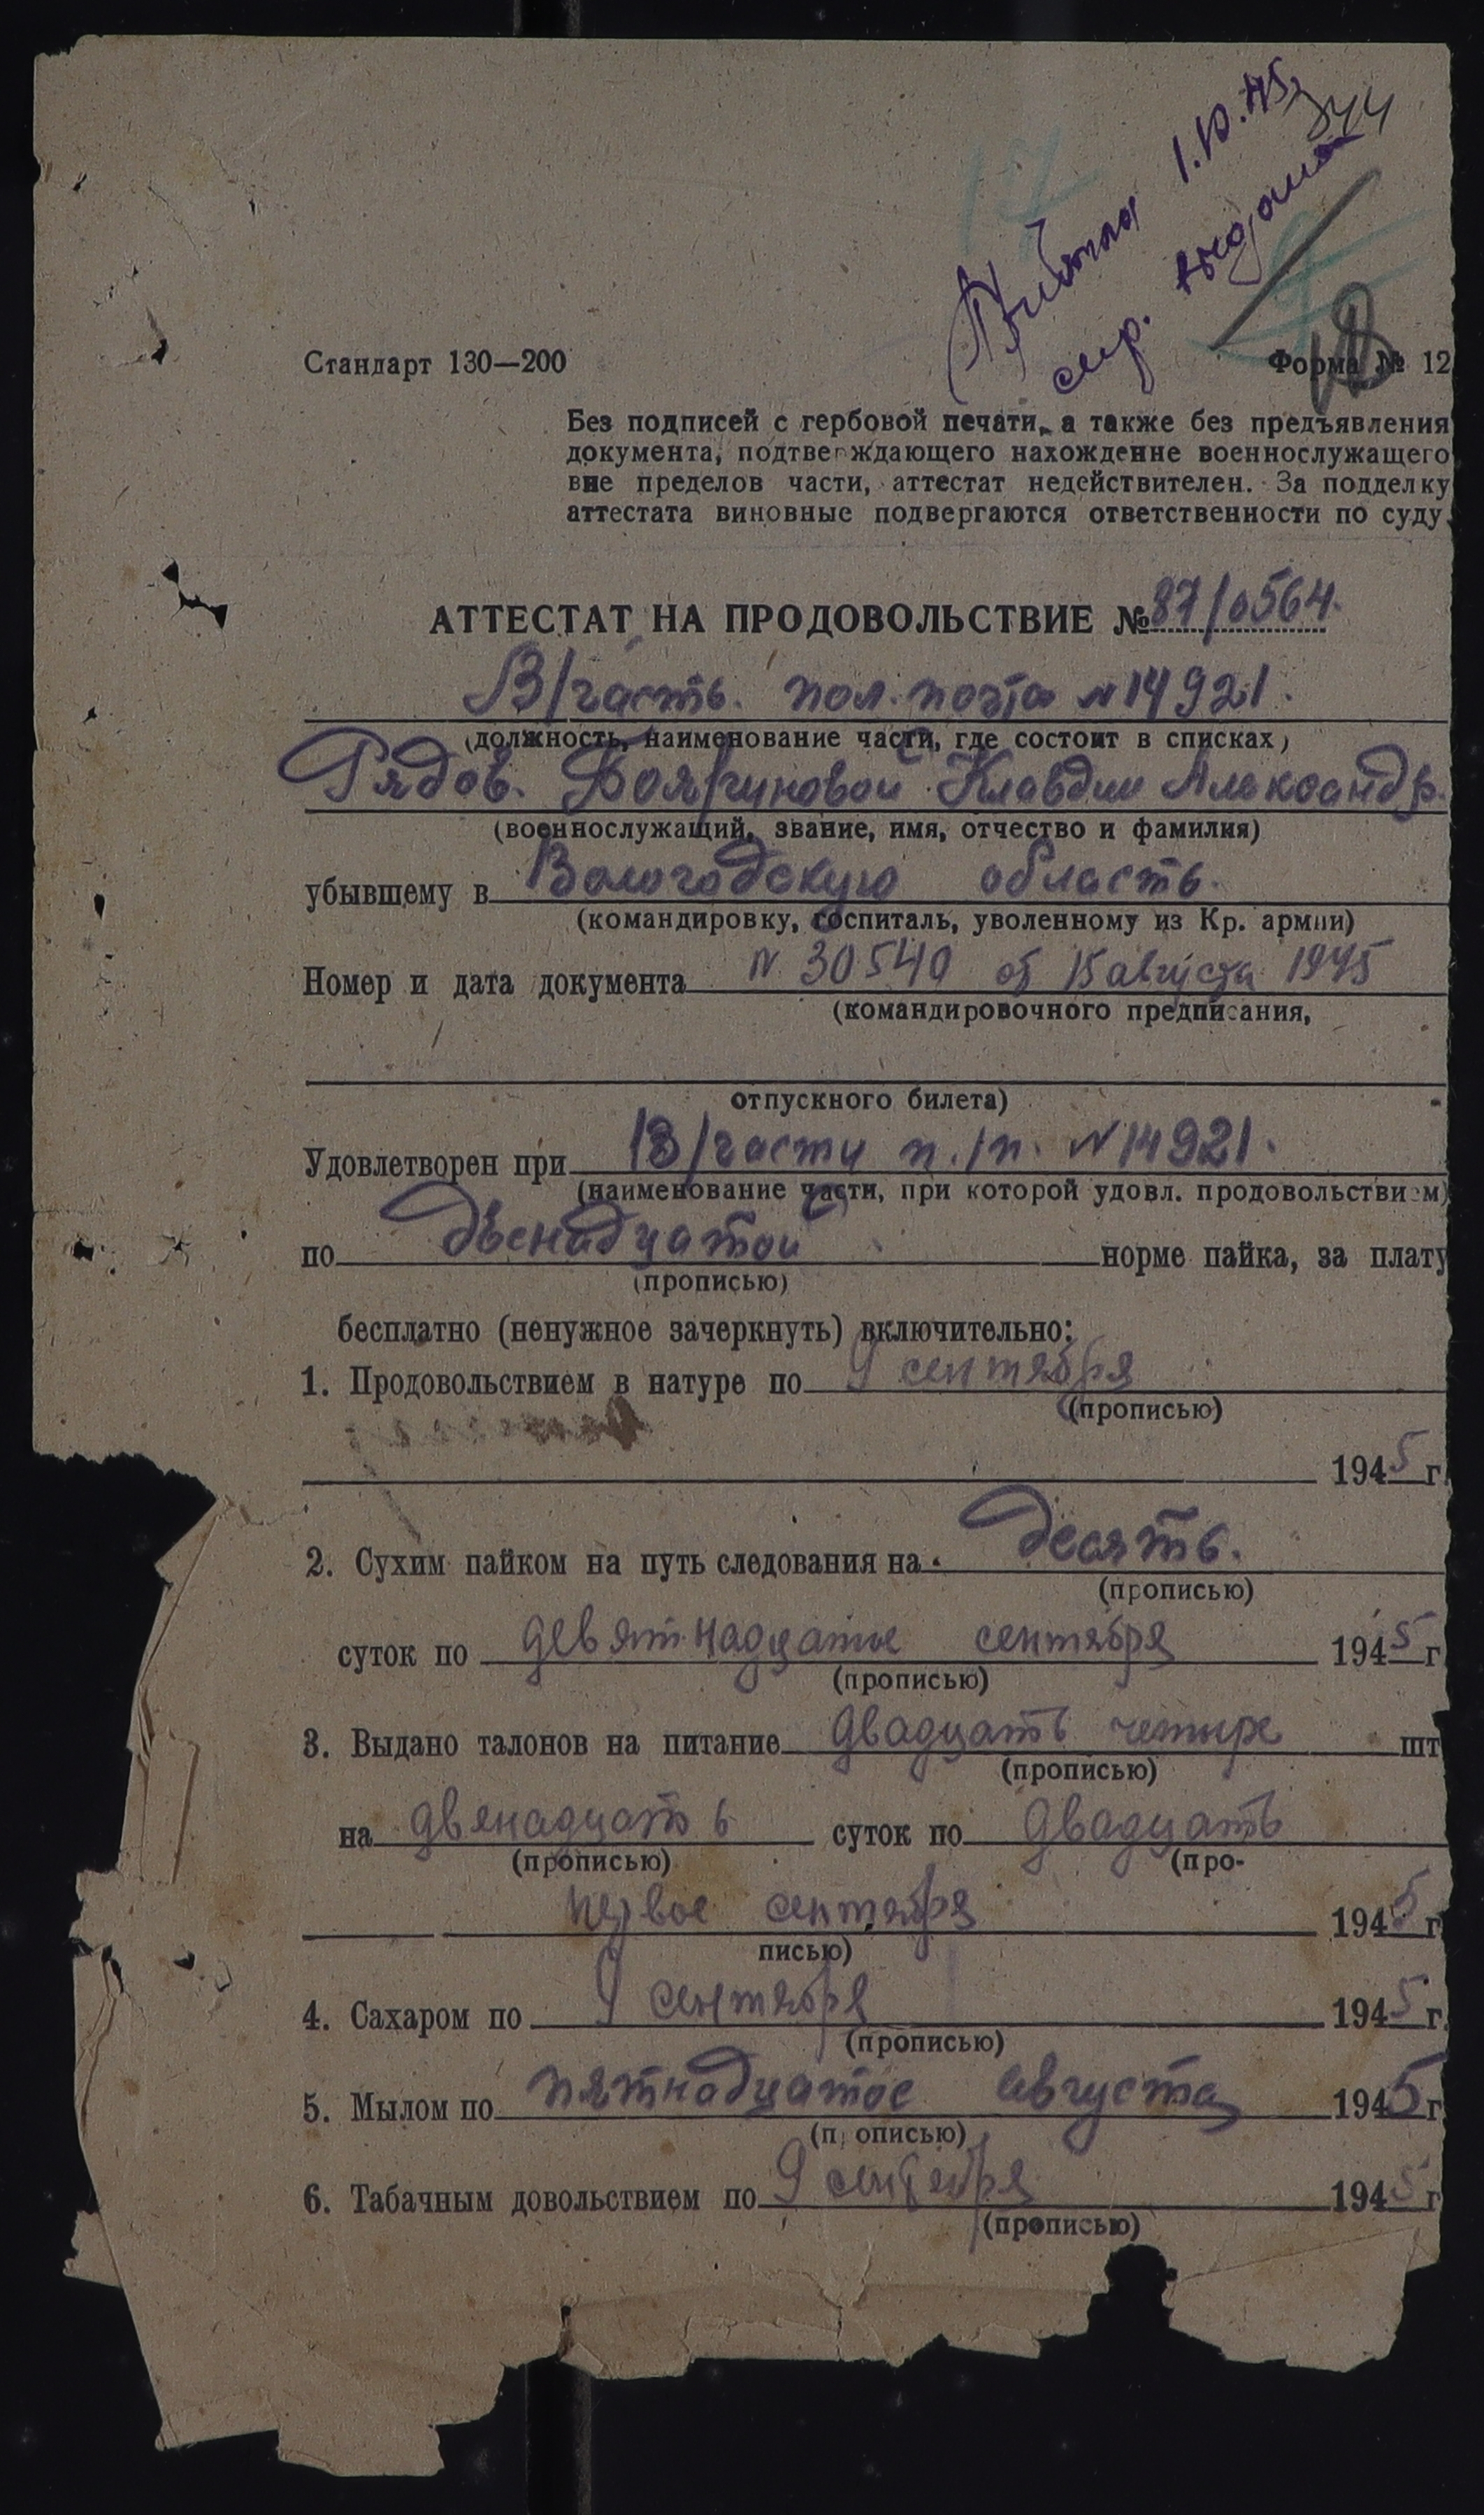 1.10.45 344
выдана
Стандарт 130—200
Форма № 12
Без подписей с гербовой печати, а также без предъявления
документа, подтверждающего нахождение военнослужащего
вне пределов части, аттестат недействителен. За подделку
аттестата виновные подвергаются ответственности по суду.
АТТЕСТАТ НА ПРОДОВОЛЬСТВИЕ № 87/0564.
В/часть. пол. почта № 14921.
(должность, наименование части, где состоит в списках)
Рядов. Клавдии Александр.
(военнослужащий, звание, имя, отчество и фамилия)
убывшему в Вологодскую область.
(командировку, госпиталь, уволенному из Кр. армии)
Номер и дата документа № 30540 от 15 августа 1945
(командировочного предписания,
отпускного билета)
Удовлетворен при В/части п./п. № 14921.
(наименование части, при которой удовл. продовольствием)
по двенадцатой норме пайка, за плату
(прописью)
бесплатно (ненужное зачеркнуть) включительно:
1. Продовольствием в натуре по 9 сентября
(прописью)
1945 г.
2. Сухим пайком на путь следования на десять.
(прописью)
суток по девятнадцатое сентября 1945 г
(прописью)
3. Выдано талонов на питание двадцать четыре шт
(прописью)
на двенадцать суток по двадцать
(прописью) (про-
первое сентября 1945 г
писью)
4. Сахаром по 9 сентября 1945 г.
(прописью)
5. Мылом по пятнадцатое августа 1945 г
(п описью)
6. Табачным довольствием по 9 сентября 1945 г
(прописью)